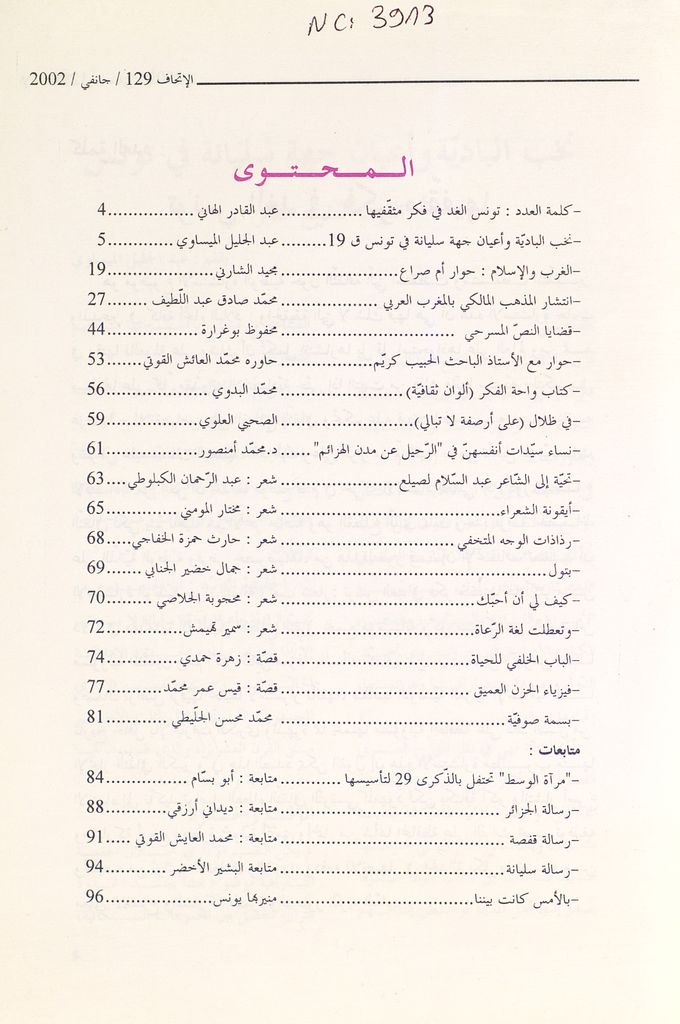 NC: 3913
الإتحاف 129 / جانفي / 2002
المحتوى
-كلمة العدد : تونس الغد في فكر مثقّفيها ................عبد القادر الهاني ................4
-نخب الباديّة وأعيان جهة سليانة في تونس ق 19.........عبد الجليل الميساوي ................5
-الغرب والإسلام : حوار أم صراع......................مجيد الشارني......................19
-انتشار المذهب المالكي بالمغرب العربي ..................محمّد صادق عبد اللّطيف ........27
-قضايا النصّ المسرحي ..........................محفوظ بوغرارة ..................44
-حوار مع الأستاذ الباحث الحبيب كريّم..................حاوره محمّد العائش القوتي.......53
-كتاب واحة الفكر (ألوان ثقافيّة)......................محمّد البدوي ....................56
-في ظلال (على أرصفة لا تبالي)......................الصحبي العلوي....................59
-نساء سيّدات أنفسهنّ في "الرّحيل عن مدن الهزائم" ......د.محمّد أمنصور..................61
-تحيّة إلى الشّاعر عبد السّلام لصيلع....................شعر : عبد الرّحمان الكبلوطي....63
-أيقونة الشعراء..................................شعر : مختار المومني ..............65
-رذاذات الوجه المتخفي ............................شعر : حارث حمزة الخفاجي.....68
-بتول ..........................................شعر : جمال خضير الجنابي ........69
-كيف لي أن أحبّك..............................شعر : محجوبة الجلاصي .........70
-وتعطلت لغة الرّعاة..............................شعر : سمير تهيمش..............72
-الباب الخلفي للحياة..............................قصّة : زهرة حمدي ..............74
-فيزياء الحزن العميق ............................قصّة : قيس عمر محمّد............77
-بسمة صوفيّة....................................محمّد محسن الجلّيطي ............81
متابعات :
-"مرآة الوسط" تحتفل بالذّكرى 29 لتأسيسها ............متابعة : أبو بسّام ................84
-رسالة الجزائر ..................................متابعة : ديداني أرزقي ............88
-رسالة قفصة ..................................متابعة : محمد العايش القوتي .....91
-رسالة سليانة..................................متابعة البشير الأخضر ............94
-بالأمس كانت بيننا..............................منيرها يونس....................96